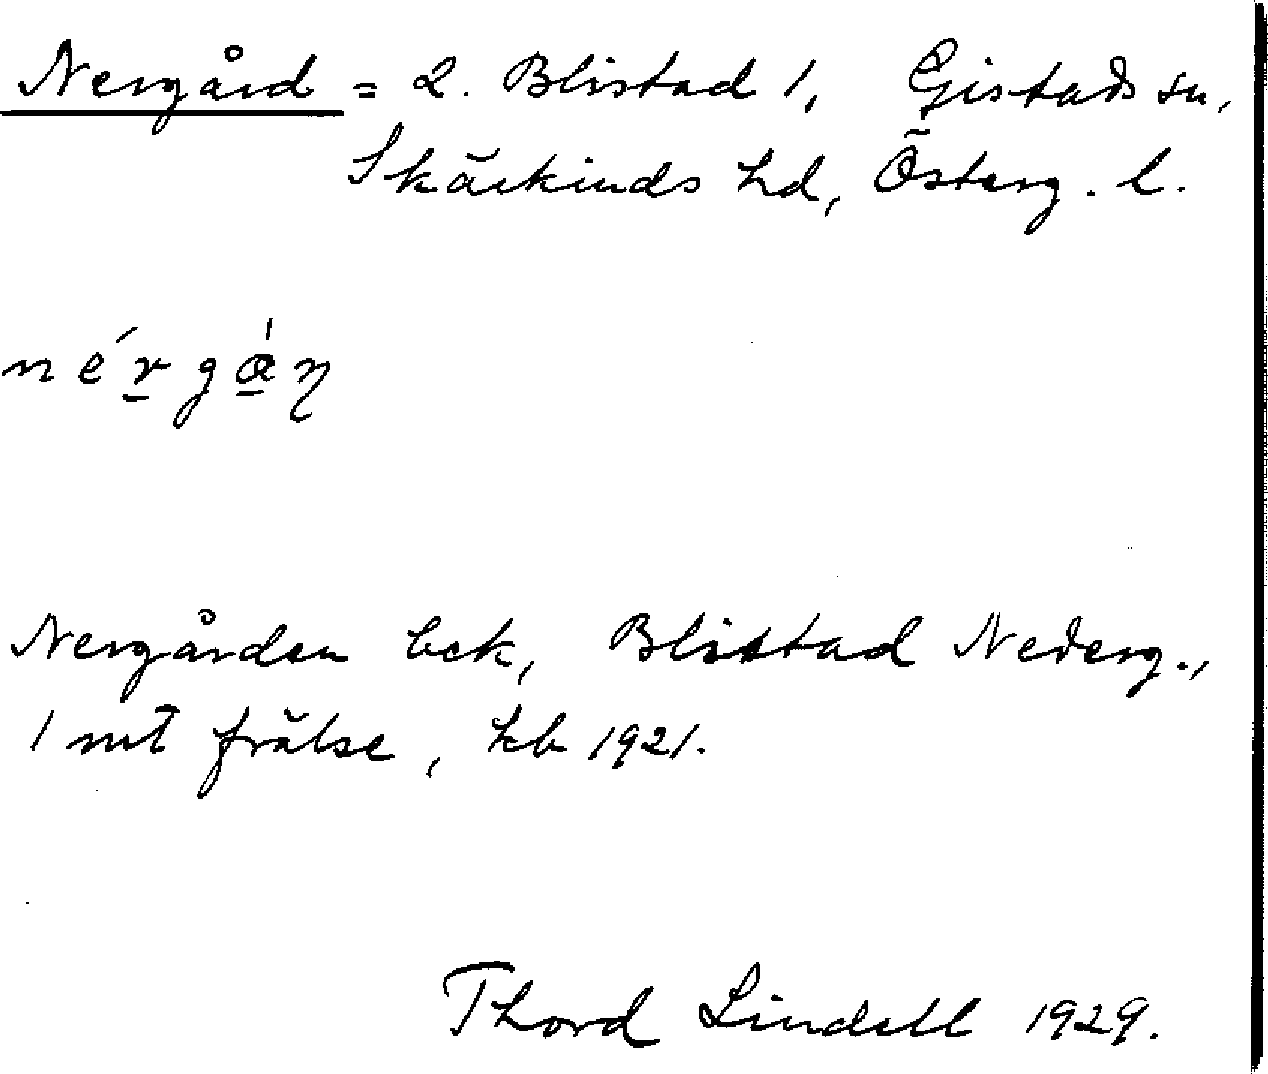 Nergård = 2. Blistad 1, Gistads sn,
Skärkinds hd, Österg. l.
nérgǻn
Nergården bek, Blistad Nederg.,
1 mt frälse, kb 1921.
Thord Lindell 1929.